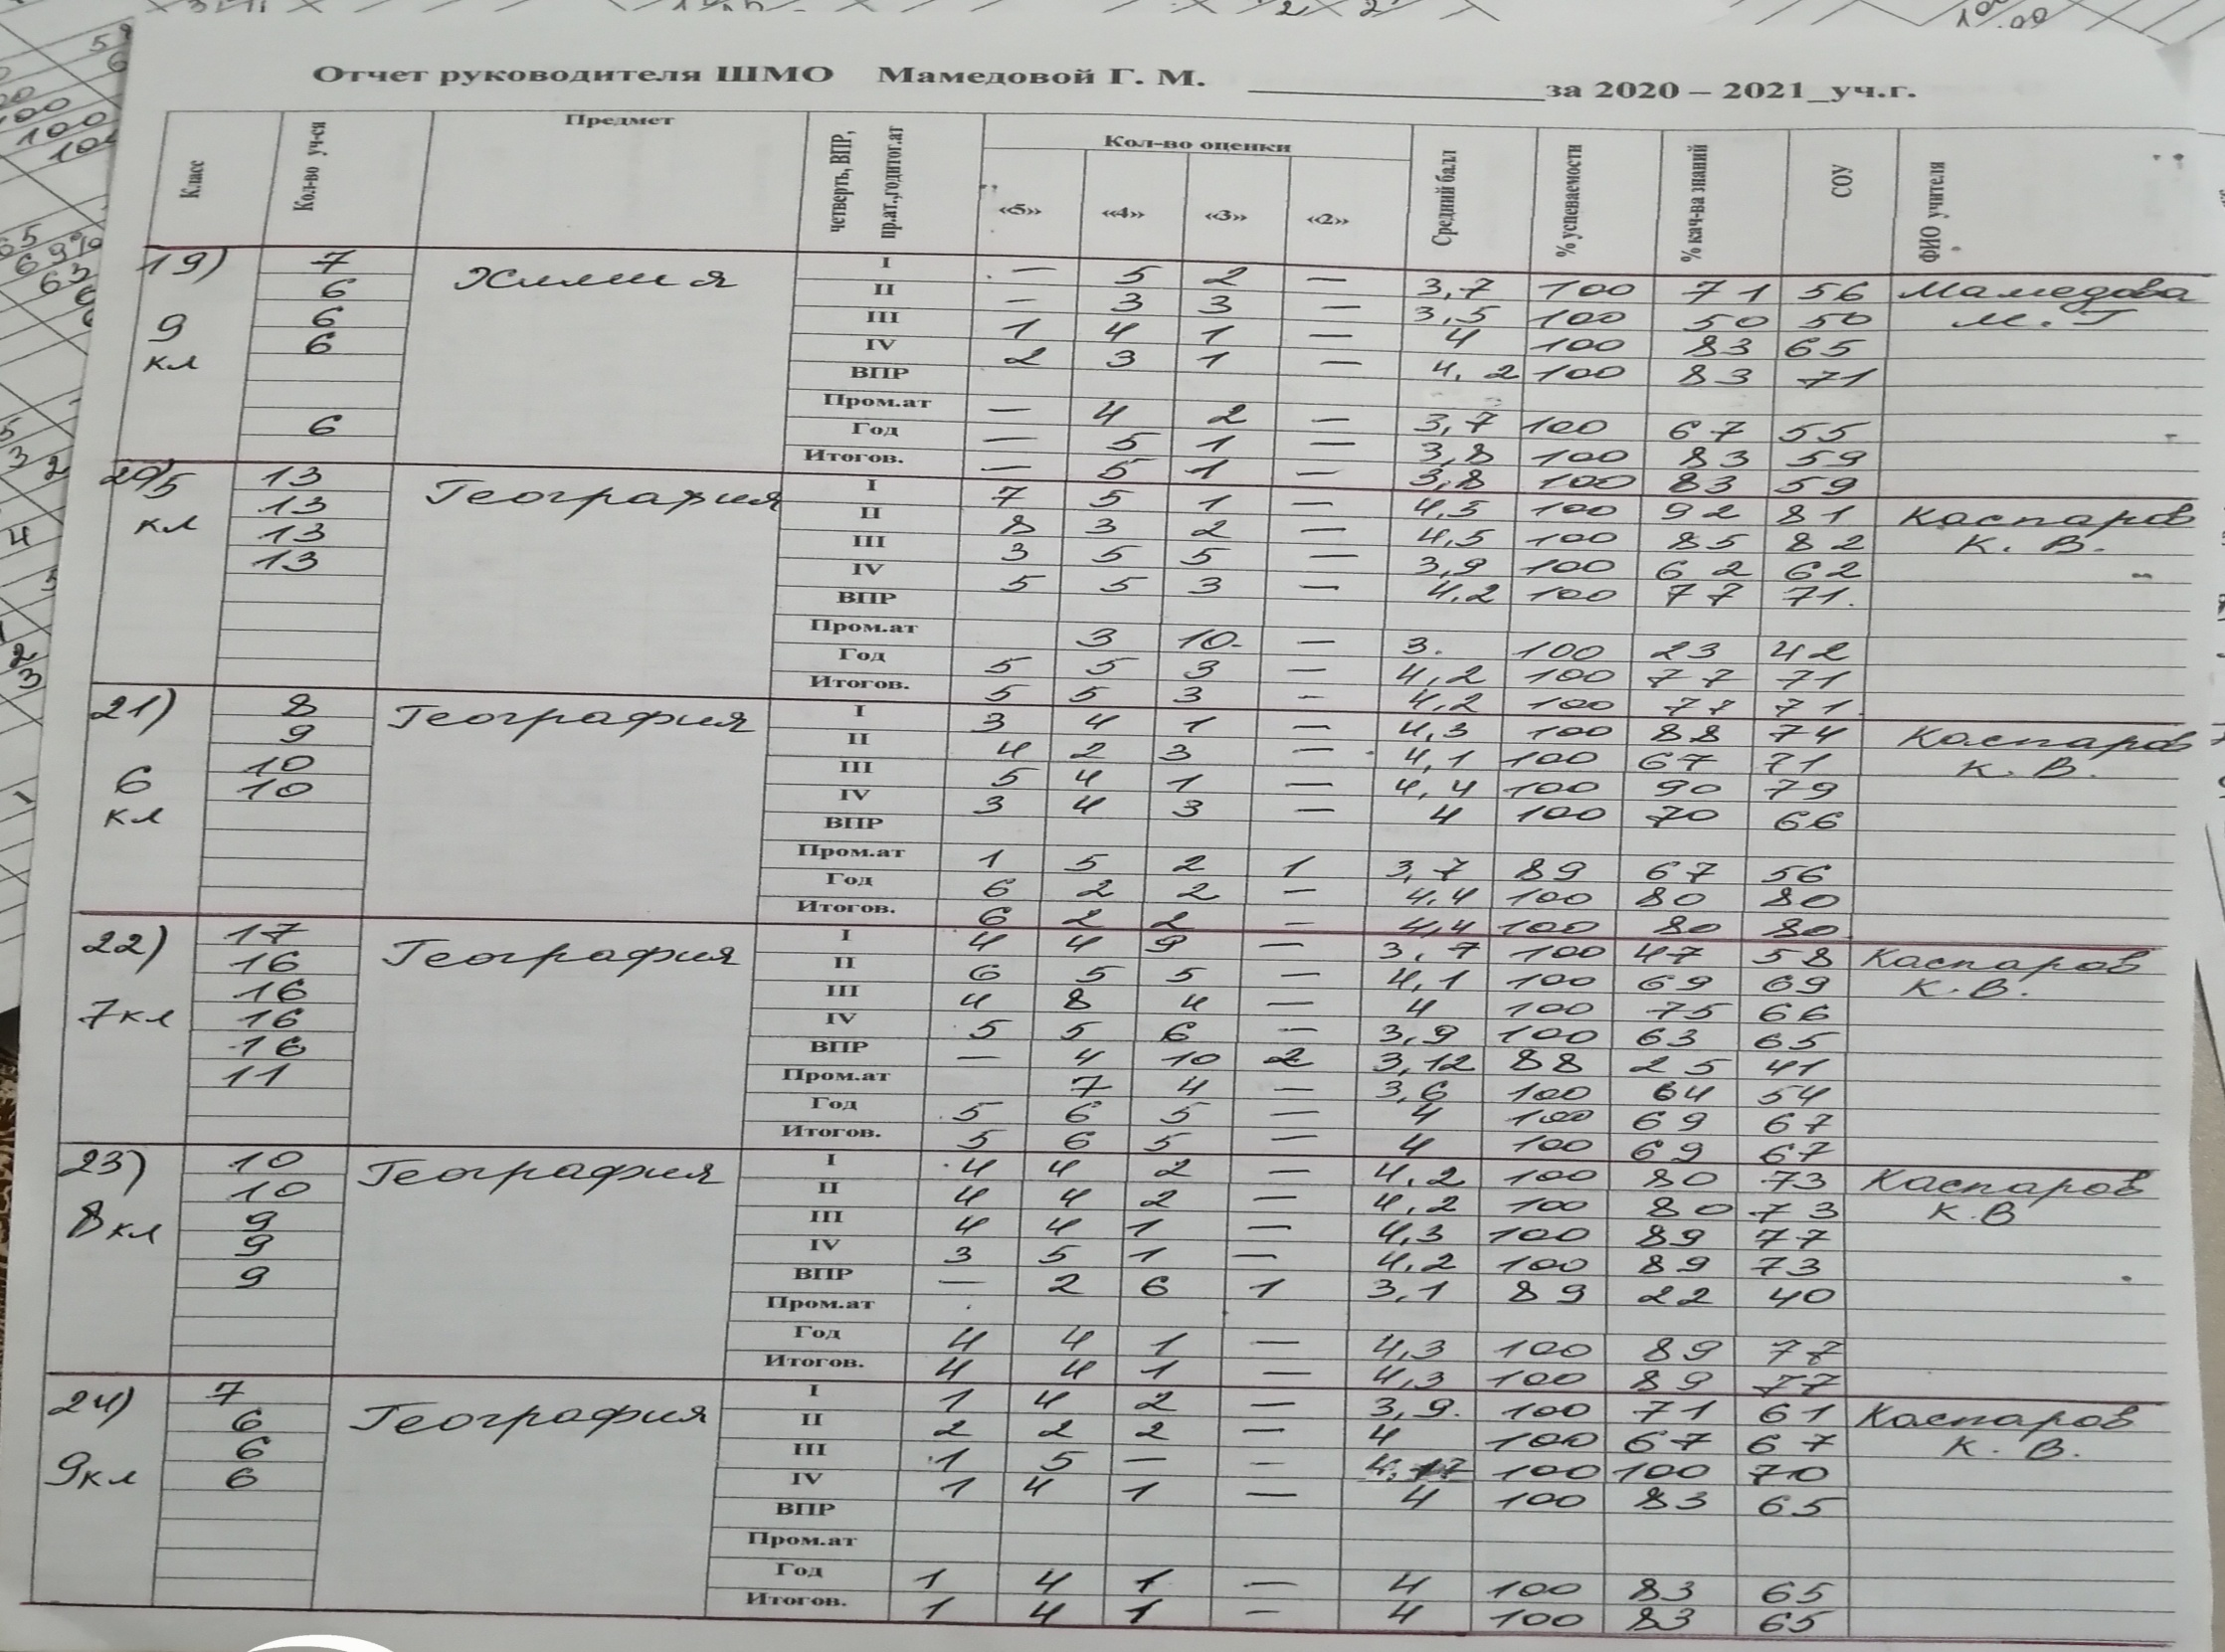 Отчет руководителя ШМО Мамедовой Г. М. ____________ за 2020 – 2021_уч.г.
Класс Кол-во уч-ся Предмет четверть, ВПР, пр.ат.,год итог.ат Кол-во оценки Средний балл % успеваемости % кач-ва знаний СОУ ФИО учителя
«5» «4» «3» «2»
19) 7 Химия I — 5 2 — 3,7 100 71 56 Мамедова
6 II — 3 3 — 3,5 100 50 50 М. Г
9 6 III 1 4 1 — 4 100 83 65
кл 6 IV 2 3 1 — 4,2 100 83 71
ВПР
Пром.ат — 4 2 — 3,7 100 67 55
6 Год — 5 1 — 3,8 100 83 59
Итогов. — 5 1 — 3,8 100 83 59
20) 5 13 География I 7 5 1 — 4,5 100 92 81 Каспаров
кл 13 II 8 3 2 — 4,5 100 85 82 К. В.
13 III 3 5 5 — 3,9 100 62 62
13 IV 5 5 3 — 4,2 100 77 71.
ВПР
Пром.ат 3 10 — 3. 100 23 42
Год 5 5 3 — 4,2 100 77 71
Итогов. 5 5 3 - 4,2 100 77 71
21) 8 География I 3 4 1 — 4,3 100 88 74 Каспаров
9 II 4 2 3 — 4,1 100 67 71 К. В.
6 10 III 5 4 1 — 4,4 100 90 79
кл 10 IV 3 4 3 — 4 100 70 66
ВПР
Пром.ат 1 5 2 1 3,7 89 67 56
Год 6 2 2 — 4,4 100 80 80
Итогов. 6 2 2 — 4,4 100 80 80
22) 17 География I 4 4 9 — 3,7 100 47 58 Каспаров
16 II 6 5 5 — 4,1 100 69 69 К. В.
7кл 16 III 4 8 4 — 4 100 75 66
16 IV 5 5 6 — 3,9 100 63 65
16 ВПР — 4 10 2 3,12 88 25 41
11 Пром.ат 7 4 — 3,6 100 64 54
Год 5 6 5 — 4 100 69 67
Итогов. 5 6 5 — 4 100 69 67
23) 10 География I 4 4 2 — 4,2 100 80 73 Каспаров
10 II 4 4 2 — 4,2 100 80 73 К.В
8кл 9 III 4 4 1 — 4,3 100 89 77
9 IV 3 5 1 — 4,2 100 89 73
9 ВПР — 2 6 1 3,1 89 22 40
Пром.ат
Год 4 4 1 — 4,3 100 89 77
Итогов. 4 4 1 — 4,3 100 89 77
24) 7 География I 1 4 2 — 3,9. 100 71 61 Каспаров
6 II 2 2 2 — 4 100 67 67 К. В.
9кл 6 III 1 5 — - 4,17 100 100 70
6 IV 1 4 1 — 4 100 83 65
ВПР
Пром.ат
Год 1 4 1 — 4 100 83 65
Итогов. 1 4 1 — 4 100 83 65